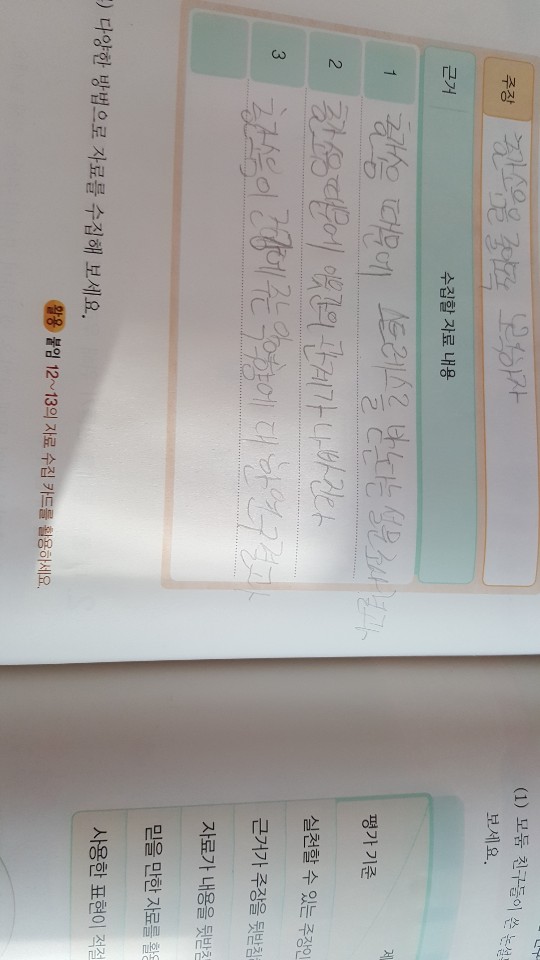 주장 층간소음을 줄이도록 노력하자
근거 수집할 자료 내용
1 층간소음 때문에 스트레스를 받는다는 설문조사 결과
2 층간소음 때문에 이웃간의 관계가 나빠진다
3 층간소음이 건강에 주는 악영향에 대한 연구 결과
) 다양한 방법으로 자료를 수집해 보세요.
활용 붙임 12~13의 자료 수집 카드를 활용하세요.
(1) 모둠 친구들이 쓴
보세요.
평가 기준
실천할 수 있는 주장인
근거가 주장을 뒷받침
자료가 내용을 뒷받침
믿을 만한 자료를 활용
사용한 표현이 적절